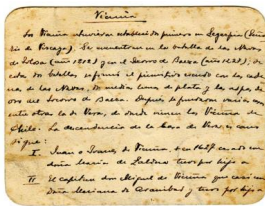 Vicuña
Los Vicuña estuvieron establecidos primero en Segurpia (Seño-
rio de Vizcaya). Se encuentran en la batalla de las Navas
de Tolosa (año 1212) y en el Socorro de Baeza (año 1227), de
esta dos batallas informó el primitivo escudo con las cade-
nas de las Navas, la media luna de plata y las aspas de
oro del Socorro de Baeza. Después formaron varias casas
entre otras la de Vera, de donde vienen los Vicuña de
Chile. La descendencia de la Casa de Vera, es como
sigue:
I. Juan o Ioanes de Vicuña, en 1627 casado con
doña María de Galdona tuvo por hijo a
II El capitan don Miguel de Vicuña que casó con
Doña Mariana de y tuvo por hijo a